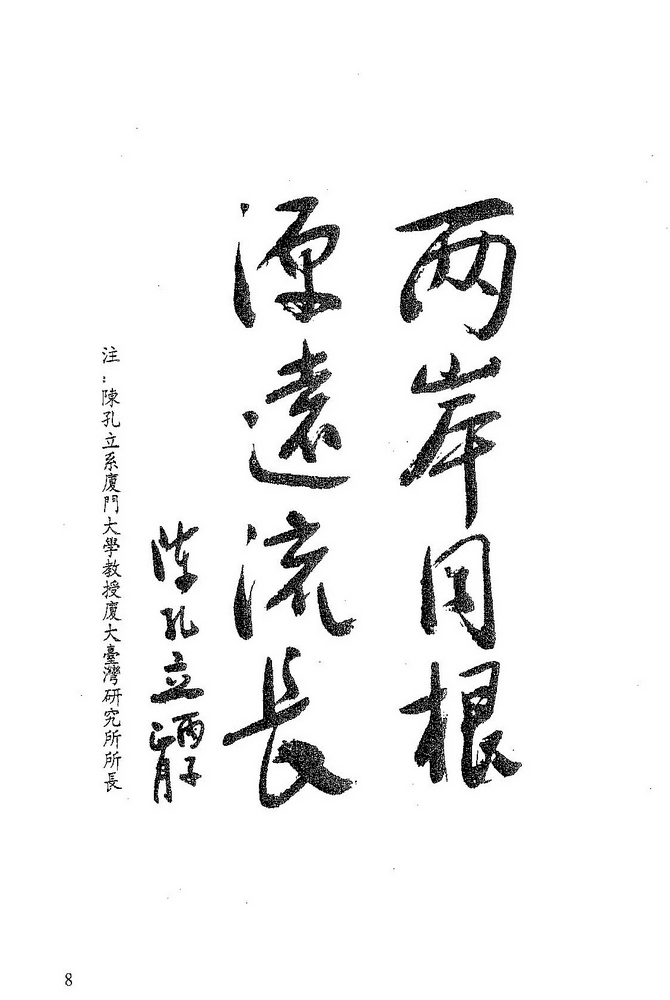 两岸同根
源遠流長
陳孔立
丙子
正月
注：陳孔立系廈門大學教授廈大臺灣研究所所長
8